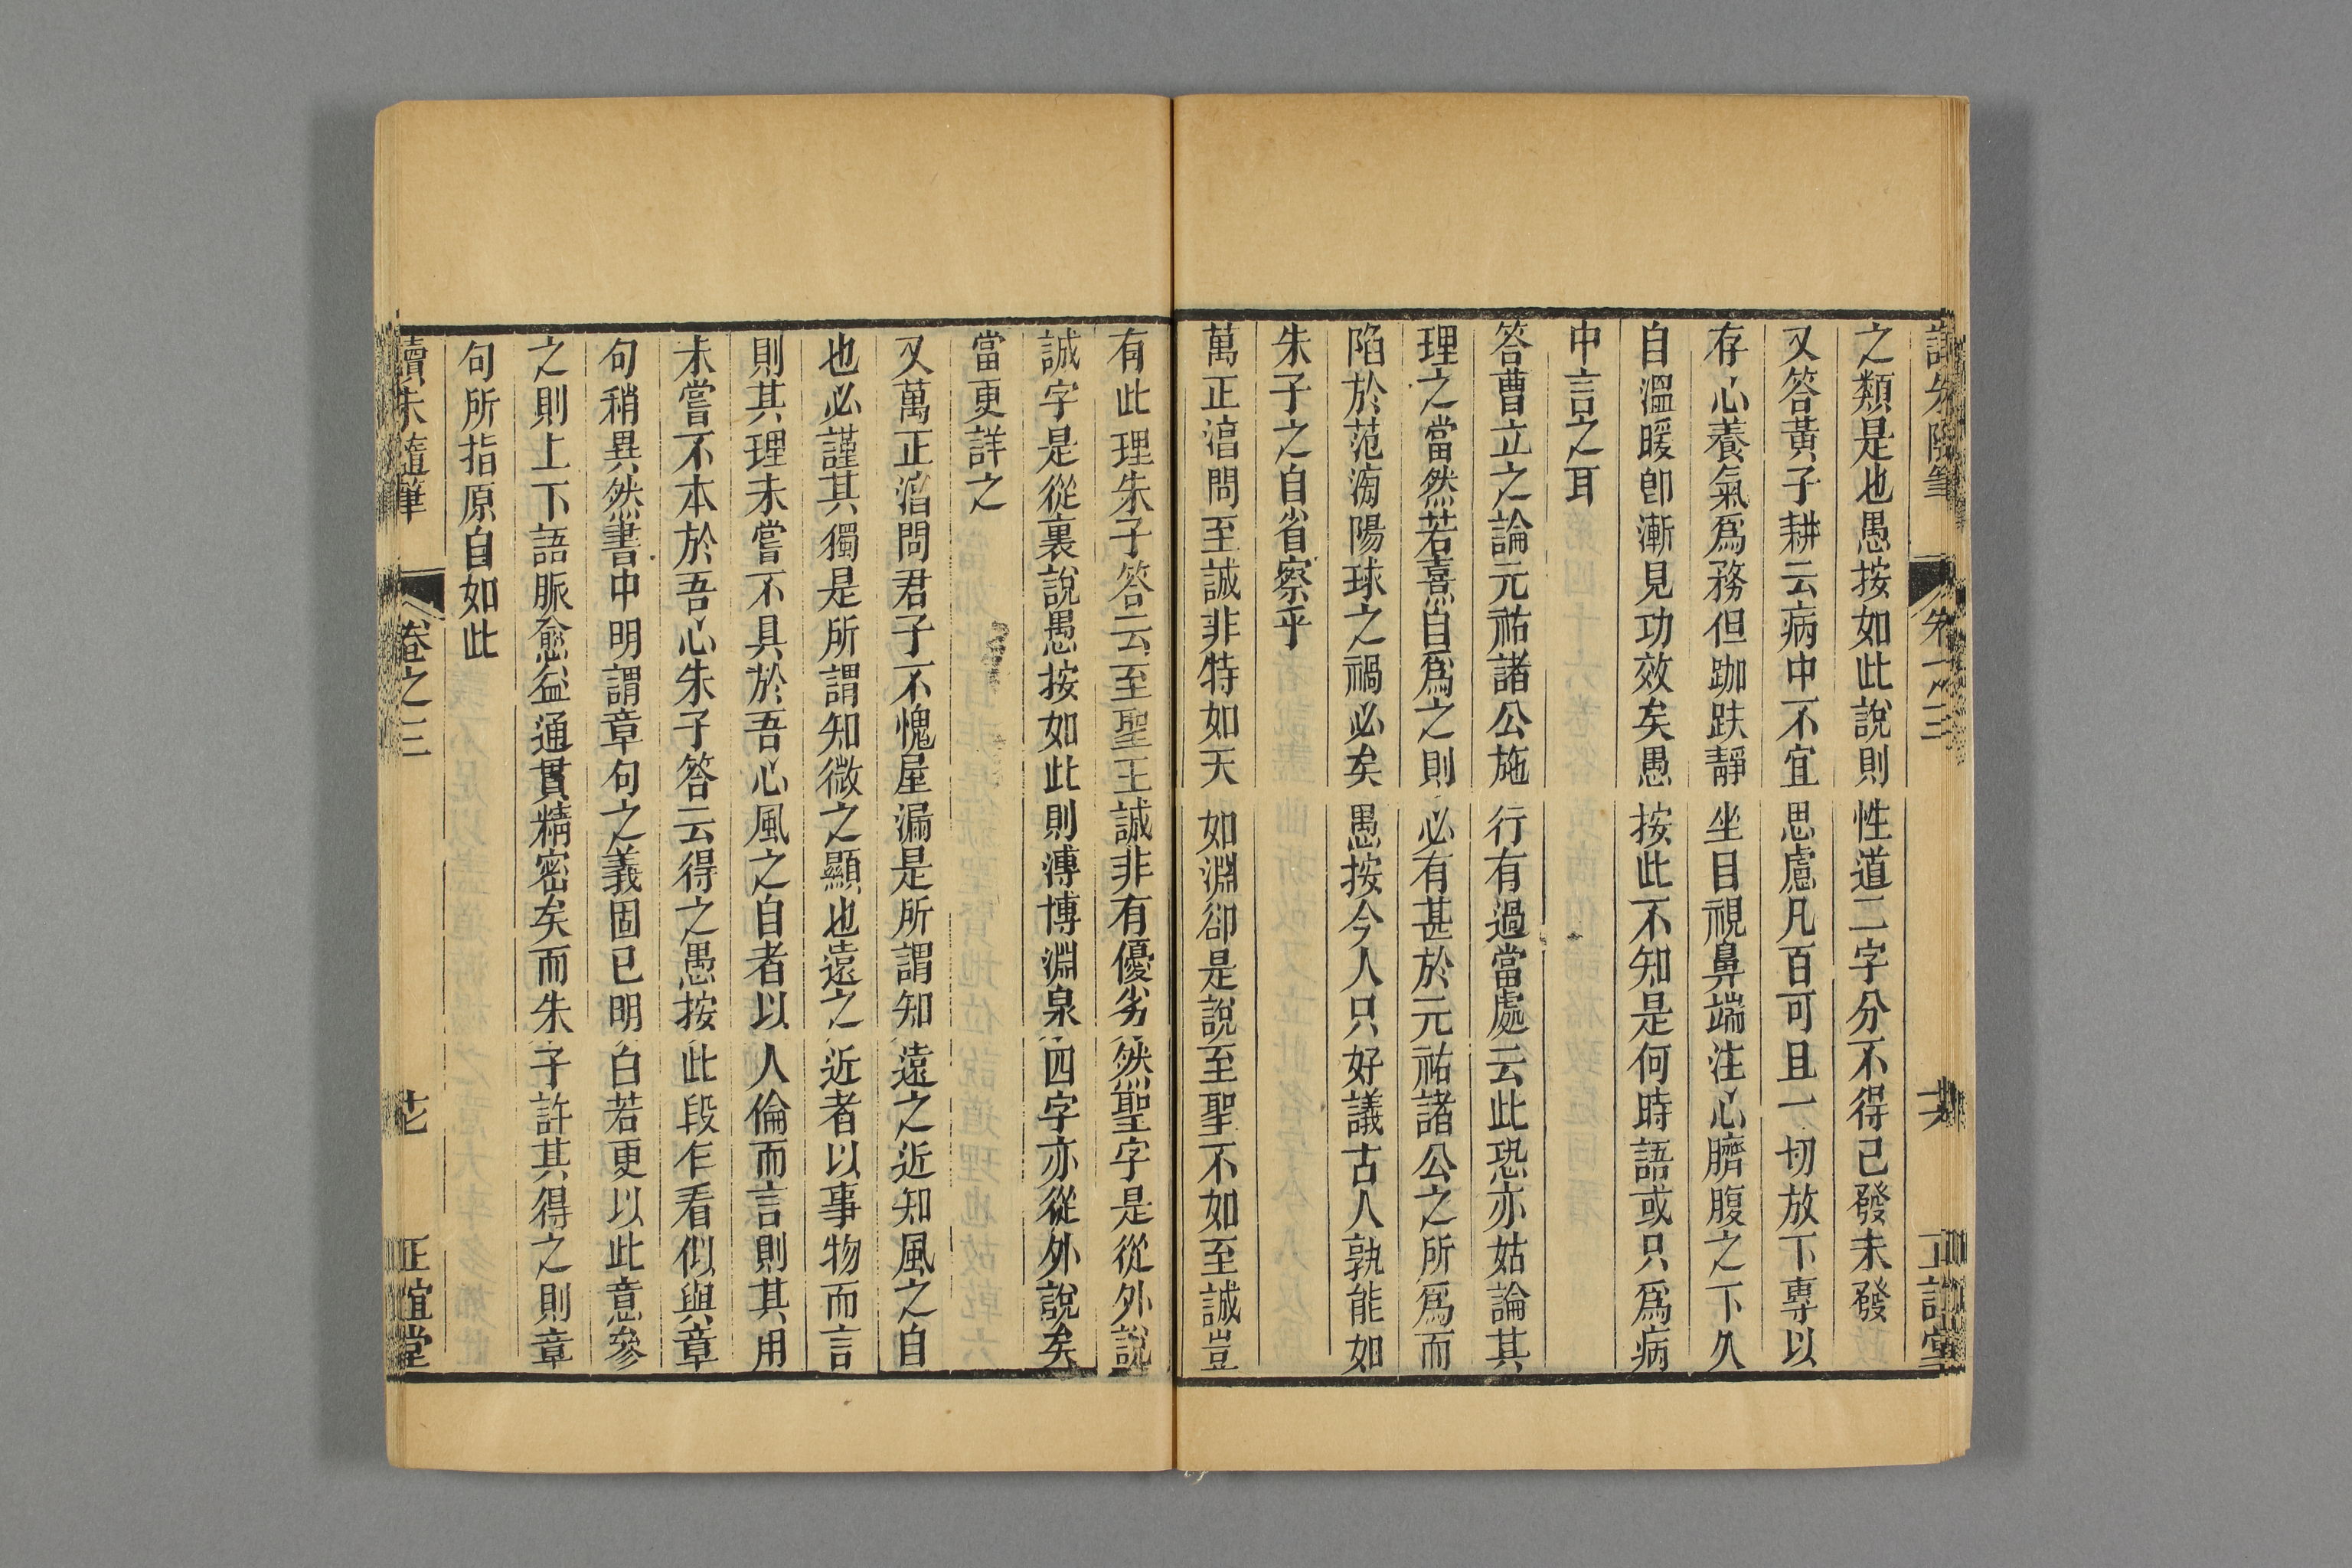 讀朱隨筆 卷之三 共 正誼堂
之類是也愚按如此說則性道二字分不得已發未發
又答黃子耕云病中不宜思慮凡百可且一切放下專以
存心養氣爲務但跏趺靜坐目視鼻端注心臍腹之下久
自溫暖卽漸見功效矣愚按此不知是何時語或只爲病
中言之耳
答曹立之論元祐諸公施行有過當處云此恐亦姑論其
理之當然若熹自爲之則必有甚於元祐諸公之所爲而
陷於范滂陽球之禍必矣愚按今人只好議古人孰能如
朱子之自省察乎
萬正淳問至誠非特如天如淵卻是說至聖不如至誠豈
有此理朱子答云至聖至誠非有優劣然聖字是從外說
誠字是從裏說愚按如此則溥博淵泉四字亦從外說矣
當更詳之
又萬正淳問君子不愧屋漏是所謂知遠之近知風之自
也必謹其獨是所謂知微之顯也遠之近者以事物而言
則其理未嘗不具於吾心風之自者以人倫而言則其用
未嘗不本於吾心朱子答云得之愚按此段乍看似與章
句稍異然書中明謂章句之義固已明白若更以此意參
之則上下語脈愈益通貫精密矣而朱子許其得之則章
句所指原自如此
讀朱隨筆 卷之三 正誼堂